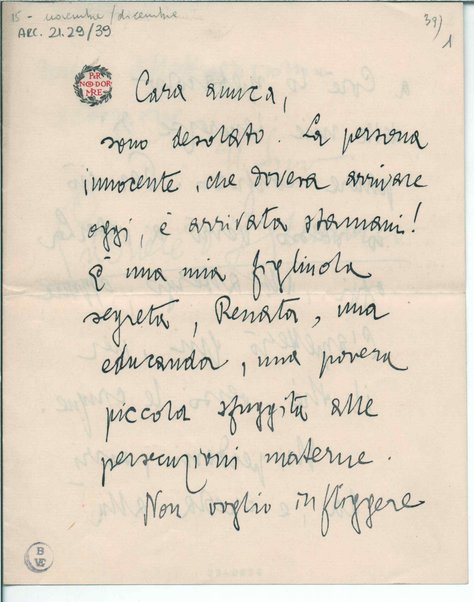 15 - novembre/dicembre
ARC. 21.29/39
39)
1
PER
NON DOR
MIRE
Cara amica,
sono desolato. La persona
innocente, che doveva arrivare
oggi, è arrivata stamani!
È una mia figliuola
segreta, Renata, una
educanda, una povera
piccola sfuggita alle
persecuzioni materne.
Non voglio infliggere
B
VE